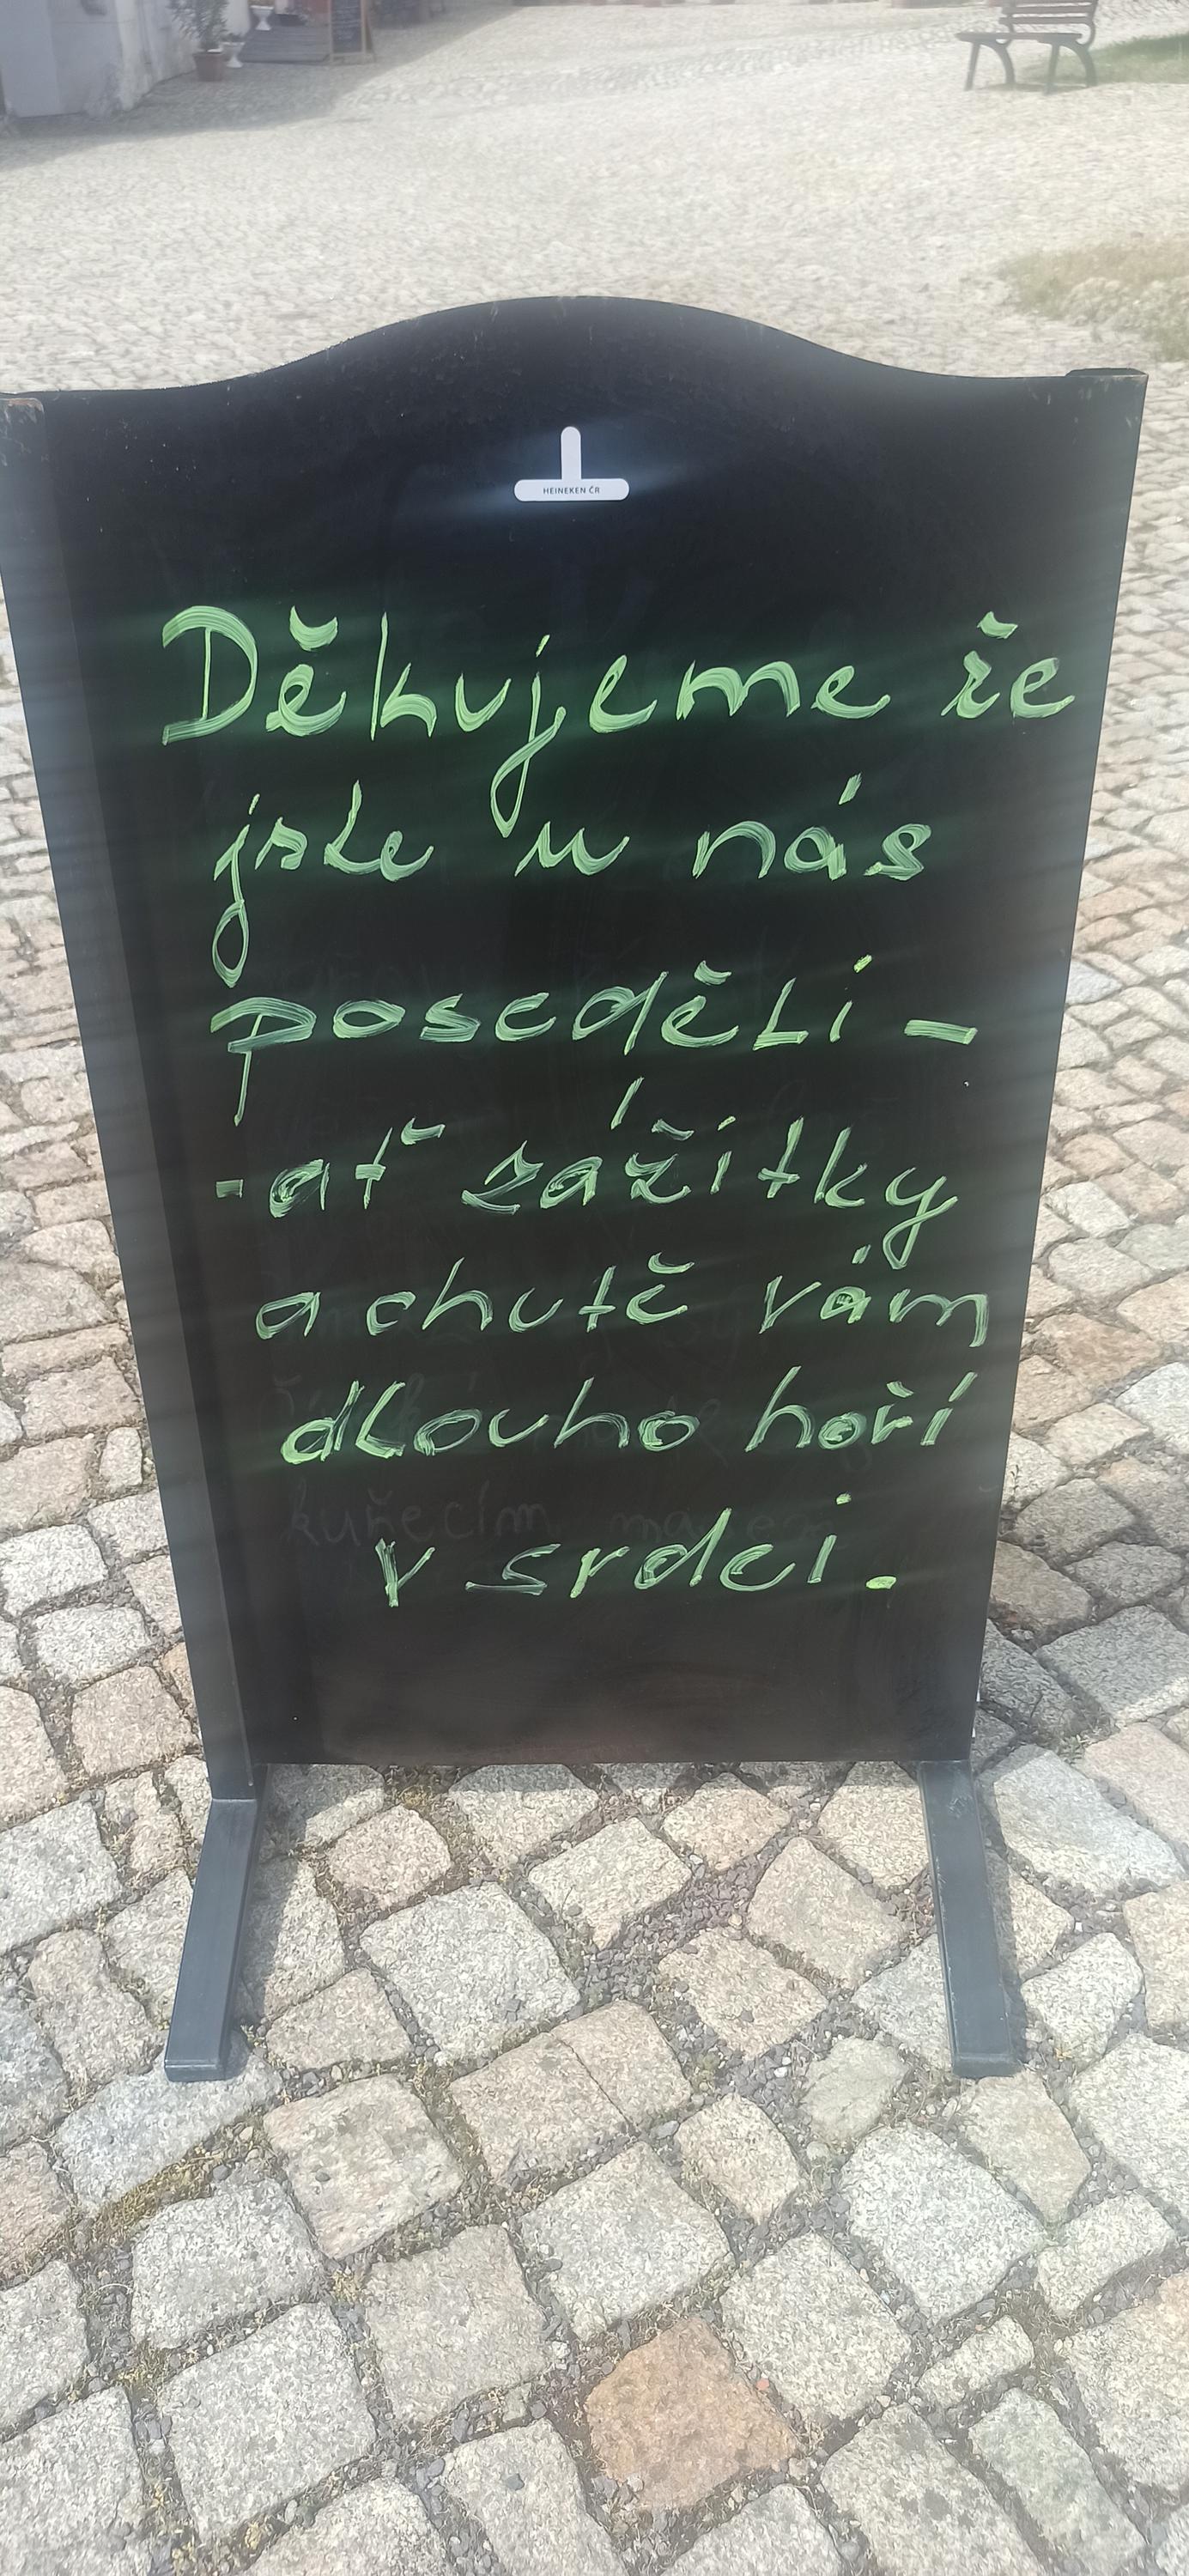 HEINEKEN ČR
Děkujeme že
jste u nás
poseděli -
- ať zážitky
a chutě vám
dlouho hoří
v srdci.